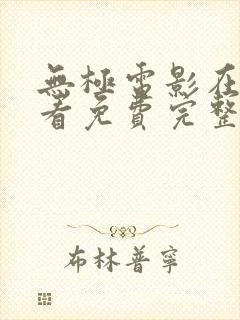 無極電影在
看免費完整
布林普寧